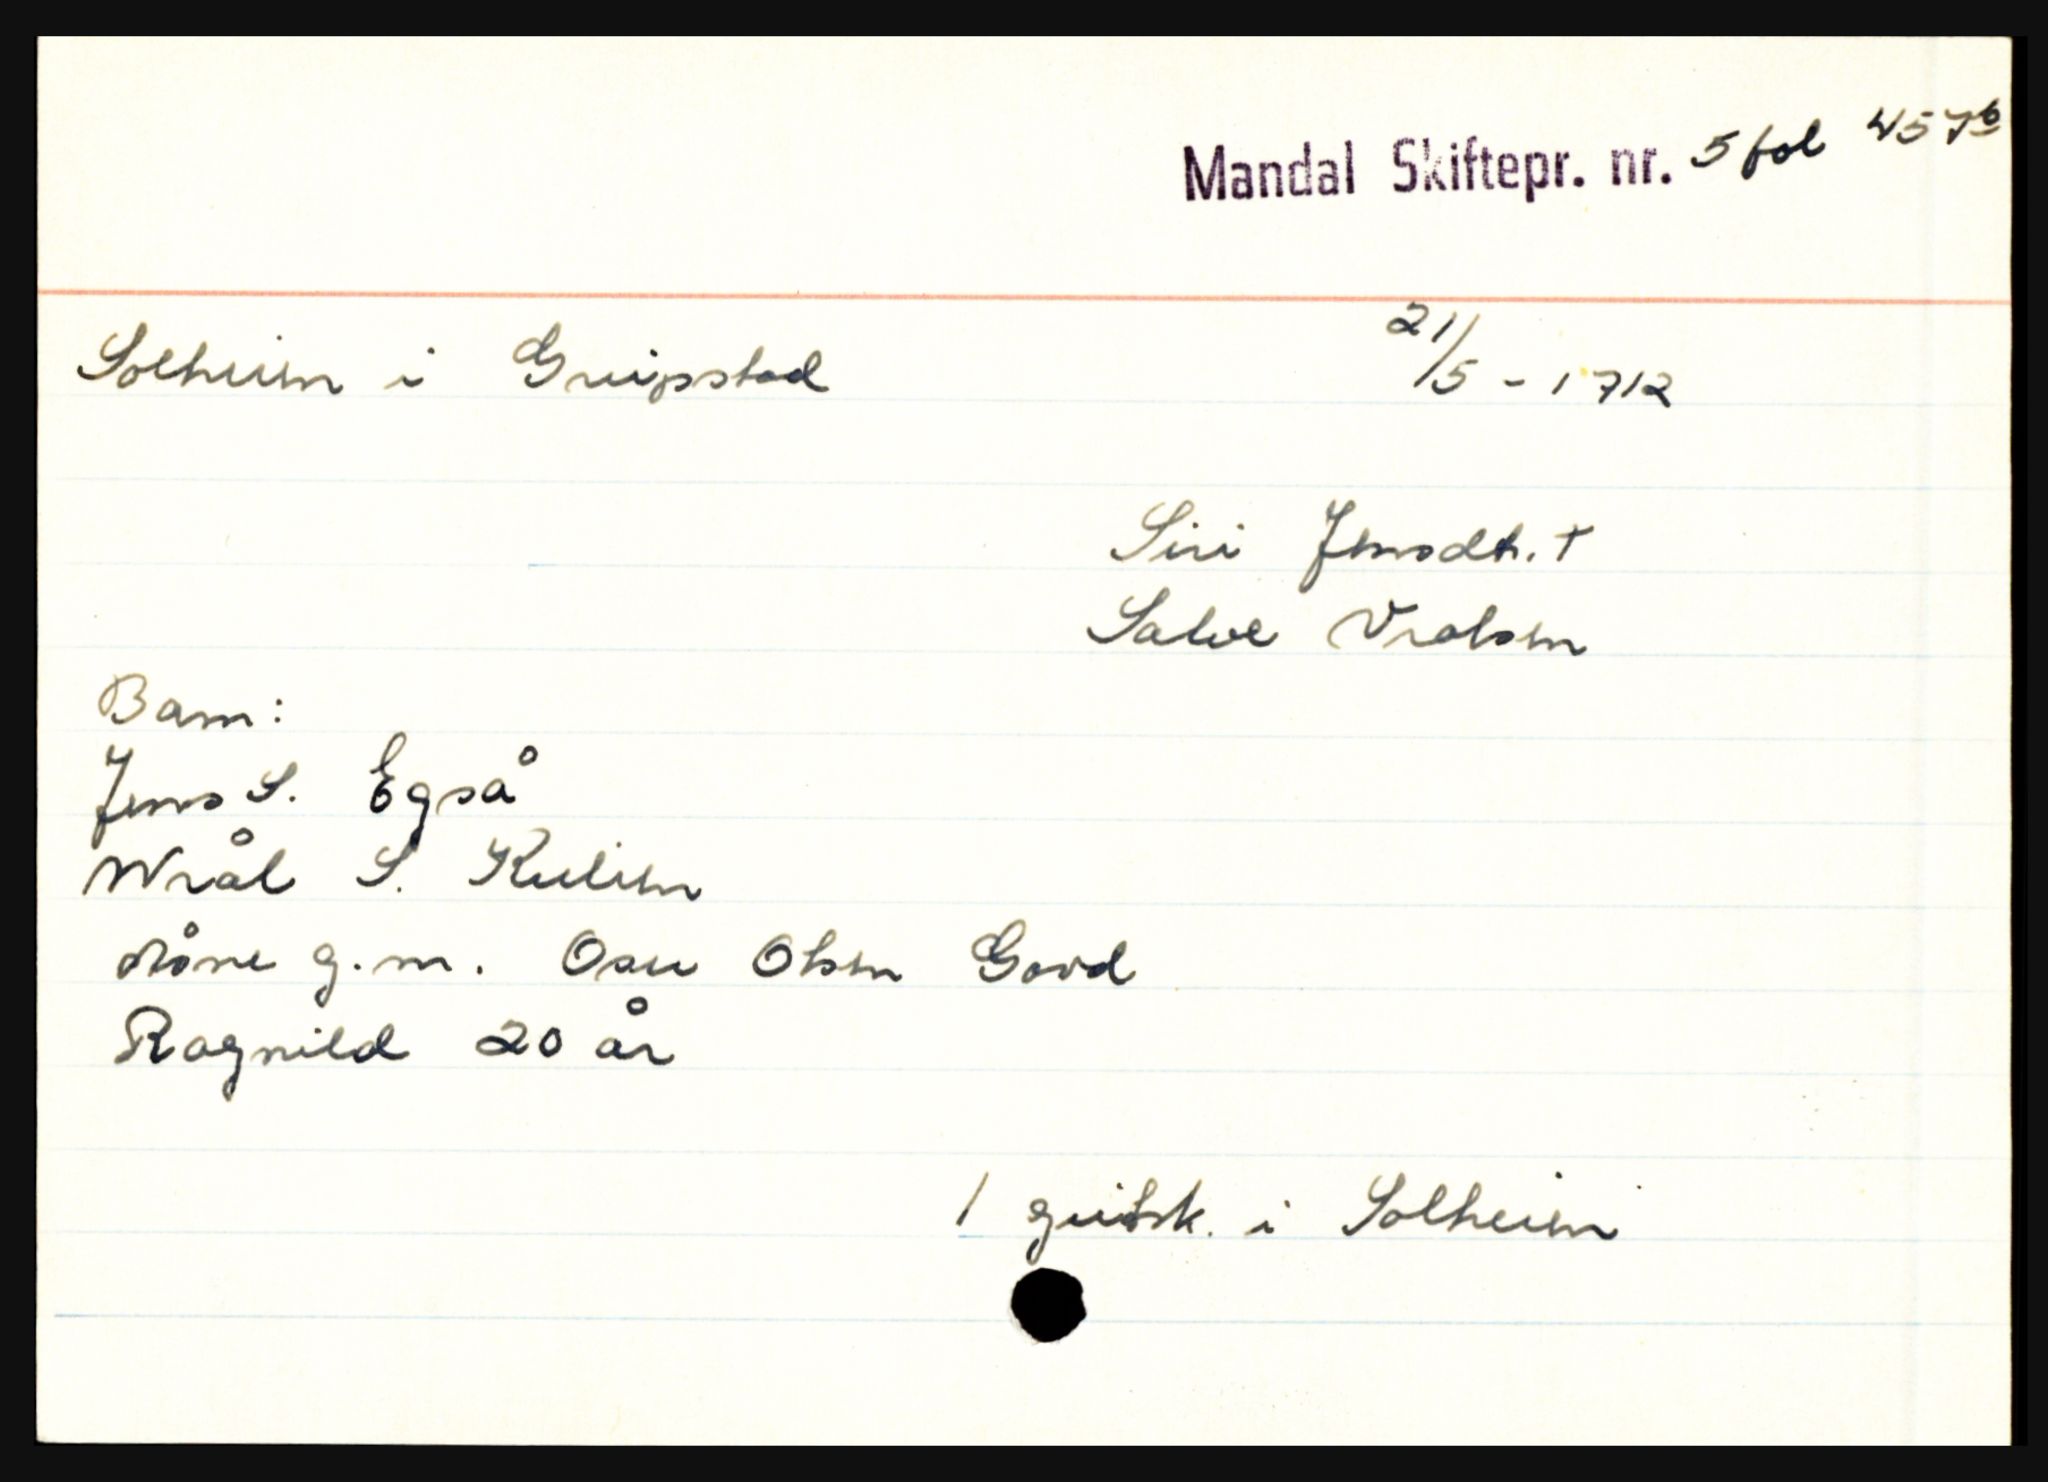 Mandal Skiftepr. nr. 5 fol 457b
Solheim i Greipstad 21/5 - 1712
Siri Jensdtr. †
Salve Vralsen
Barn:
Jens S. Egså
Wrål S. Kulien
Åne g.m. Osu Olsen Gord
Ragnild 20 år
1 geitsk. i Solheim